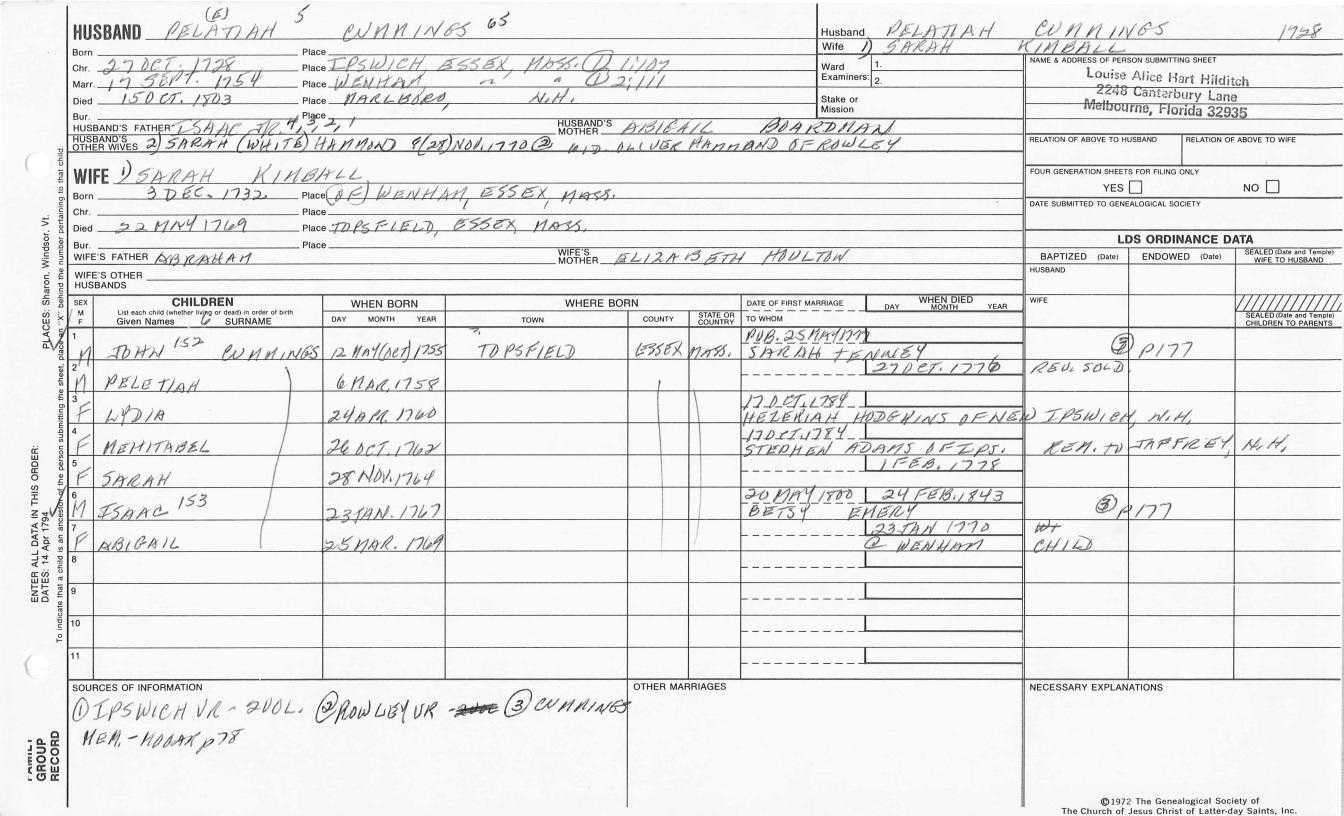 (E) 5
HUSBAND PELATIAH CUMMINGS 65
Born Place
Chr. 27 OCT. 1728 Place IPSWICH, ESSEX, MASS. ① 1:107
Marr. 17 SEPT. 1754 Place WENHAM " " ① 2:111
Died 15 OCT. 1803 Place MARLBORO, N.H.
Bur. Place
HUSBAND'S FATHER ISAAC JR. 4, 3, 2, 1 HUSBAND'S MOTHER ABIGAIL BOARDMAN
HUSBAND'S OTHER WIVES 2) SARAH (WHITE) HAMMOND 8/(28) NOV. 1770 ② WID. OLIVER HAMMOND OF ROWLEY
WIFE 1) SARAH KIMBALL
Born 3 DEC. 1732 Place (OF) WENHAM, ESSEX, MASS.
Chr. Place
Died 22 MAY 1769 Place TOPSFIELD, ESSEX, MASS.
Bur. Place
WIFE'S FATHER ABRAHAM WIFE'S MOTHER ELIZABETH HOULTON
WIFE'S OTHER HUSBANDS
Husband PELATIAH CUMMINGS 1728
Wife 1) SARAH KIMBALL
Ward Examiners: 1.
2.
Stake or Mission
NAME & ADDRESS OF PERSON SUBMITTING SHEET
Louise Alice Hart Hilditch
2248 Canterbury Lane
Melbourne, Florida 32935
RELATION OF ABOVE TO HUSBAND RELATION OF ABOVE TO WIFE
FOUR GENERATION SHEETS FOR FILING ONLY
YES NO
DATE SUBMITTED TO GENEALOGICAL SOCIETY
LDS ORDINANCE DATA
BAPTIZED (Date) ENDOWED (Date) SEALED (Date and Temple) WIFE TO HUSBAND
HUSBAND
WIFE
SEALED (Date and Temple) CHILDREN TO PARENTS
SEX M F CHILDREN WHEN BORN WHERE BORN DATE OF FIRST MARRIAGE WHEN DIED
List each child (whether living or dead) in order of birth
Given Names 6 SURNAME DAY MONTH YEAR TOWN COUNTY STATE OR COUNTRY TO WHOM DAY MONTH YEAR
PUB. 25 MAY 1777
1 M JOHN 152 CUMMINGS 12 MAY (OCT) 1755 TOPSFIELD ESSEX MASS. SARAH TENNEY ③ P177
27 OCT. 1776 REV. SOLD.
2 M PELETIAH 6 MAR. 1758
17 OCT. 1784
3 F LYDIA 24 APR. 1760 HEZEKIAH HODGKINS OF NEW IPSWICH, N.H.
17 OCT. 1784
4 F MEHITABEL 26 OCT. 1762 STEPHEN ADAMS OF IPS. REM. TO JAFFREY, N.H.
1 FEB. 1778
5 F SARAH 28 NOV. 1764
20 MAY 1800 24 FEB. 1843
6 M ISAAC 153 23 JAN. 1767 BETSY EMERY ③ P177
23 JAN 1770
7 F ABIGAIL 25 MAR. 1769 @ WENHAM CHILD
8
9
10
11
SOURCES OF INFORMATION
① IPSWICH VR - 2 VOL. ② ROWLEY VR - ③ CUMMINGS
MEM. - MOOAR p78
OTHER MARRIAGES
NECESSARY EXPLANATIONS
©1972 The Genealogical Society of
The Church of Jesus Christ of Latter-day Saints, Inc.
FAMILY GROUP RECORD
ENTER ALL DATA IN THIS ORDER:
DATES: 14 Apr 1794
PLACES: Sharon, Windsor, Vt.
To indicate that a child is an ancestor of the person submitting the sheet, place an "X" behind the number pertaining to that child.